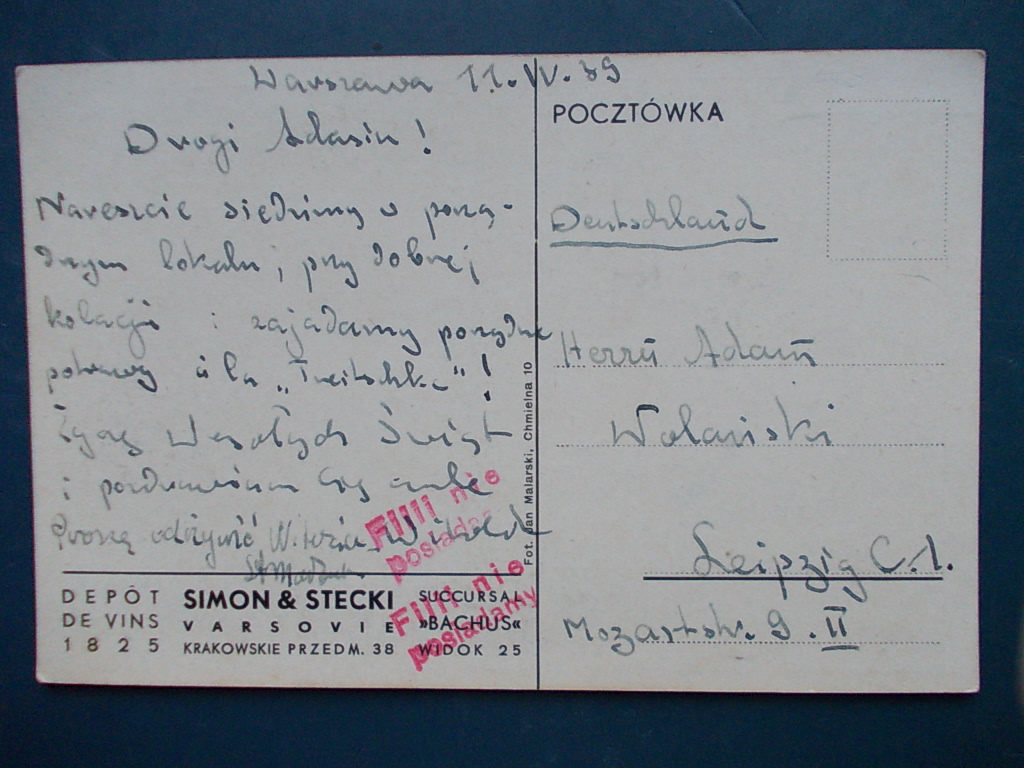 Warszawa 11.IV.39
Drogi Adasiu!
Nareszcie siedzimy w porzą-
dnym lokalu, przy dobrej
kolacji i zajadamy porządne
potrawy à la „ “!
Życzę Wesołych Świąt
i pozdrowienia
Proszę Witold
DEPÔT
DE VINS
1825
SIMON & STECKI
VARSOVIE
KRAKOWSKIE PRZEDM. 38
SUCCURSAL
»BACHUS«
WIDOK 25
Filii nie
posiadamy
Filii nie
posiadamy
Fot. Jan Malarski, Chmielna 10
POCZTÓWKA
Deutschland
Herrn Adam
Wolański
Leipzig C.1.
Mozartstr. 9. II